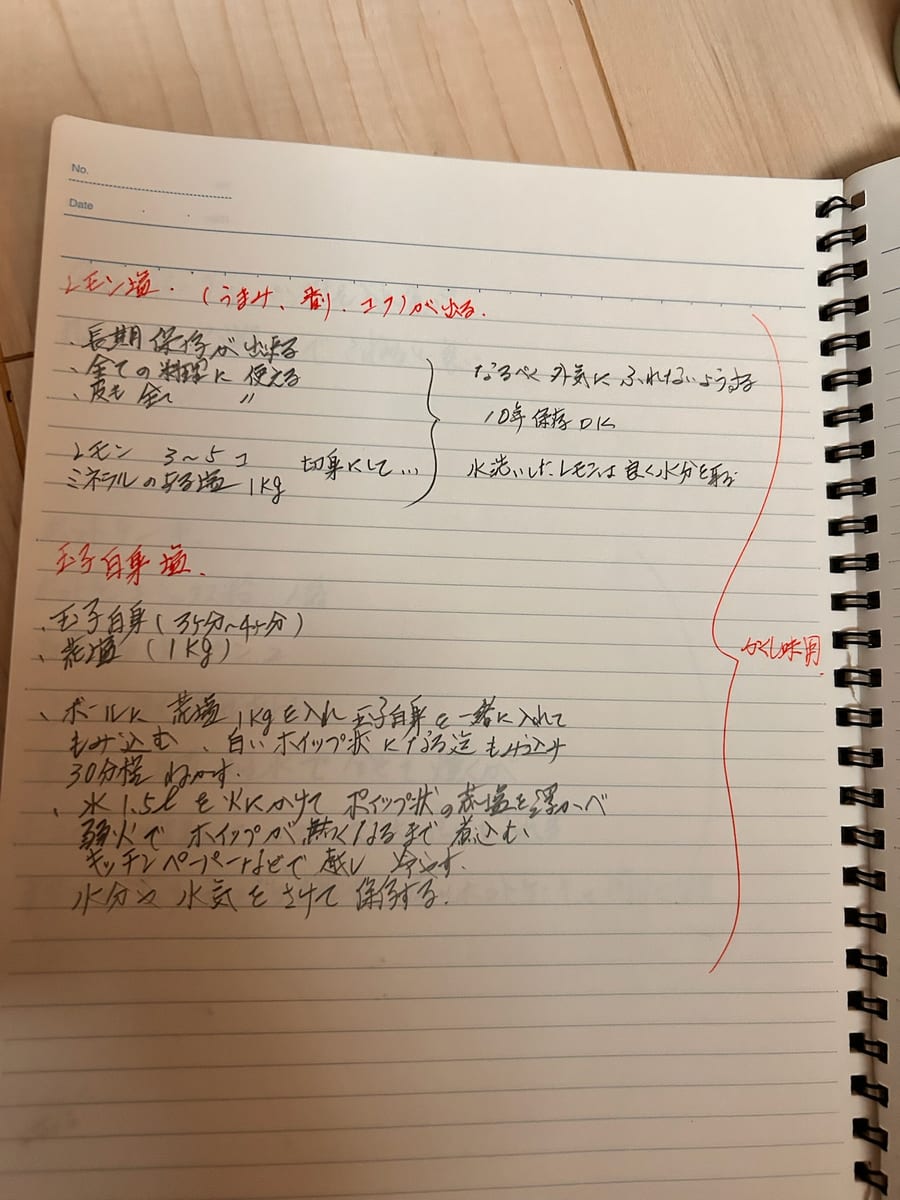 No.
Date
レモン塩. (うまみ、 コク)が出る.
・長期保存が出来る
、全ての料理に使える
、皮も全て 〃
なるべく外気にふれないようする
10年保存OK
レモン 3~5コ 切身にして...
ミネラルのある塩 1kg
水洗いしたレモンは良く水分を取る
玉子白身塩.
、玉子白身(35分~45分)
、荒塩 (1kg)
かくし味用
、ボールに荒塩1kgを入れ玉子白身を一緒に入れて
もみ込む、白いホイップ状になる迄もみ込み
30分程ねかす.
、水1.5ℓを火にかけてホイップ状の荒塩を浮かべ
弱火でホイップが無くなるまで煮込む
キッチンペーパーなどで越し 冷やす.
水分や水気をさけて保存する.